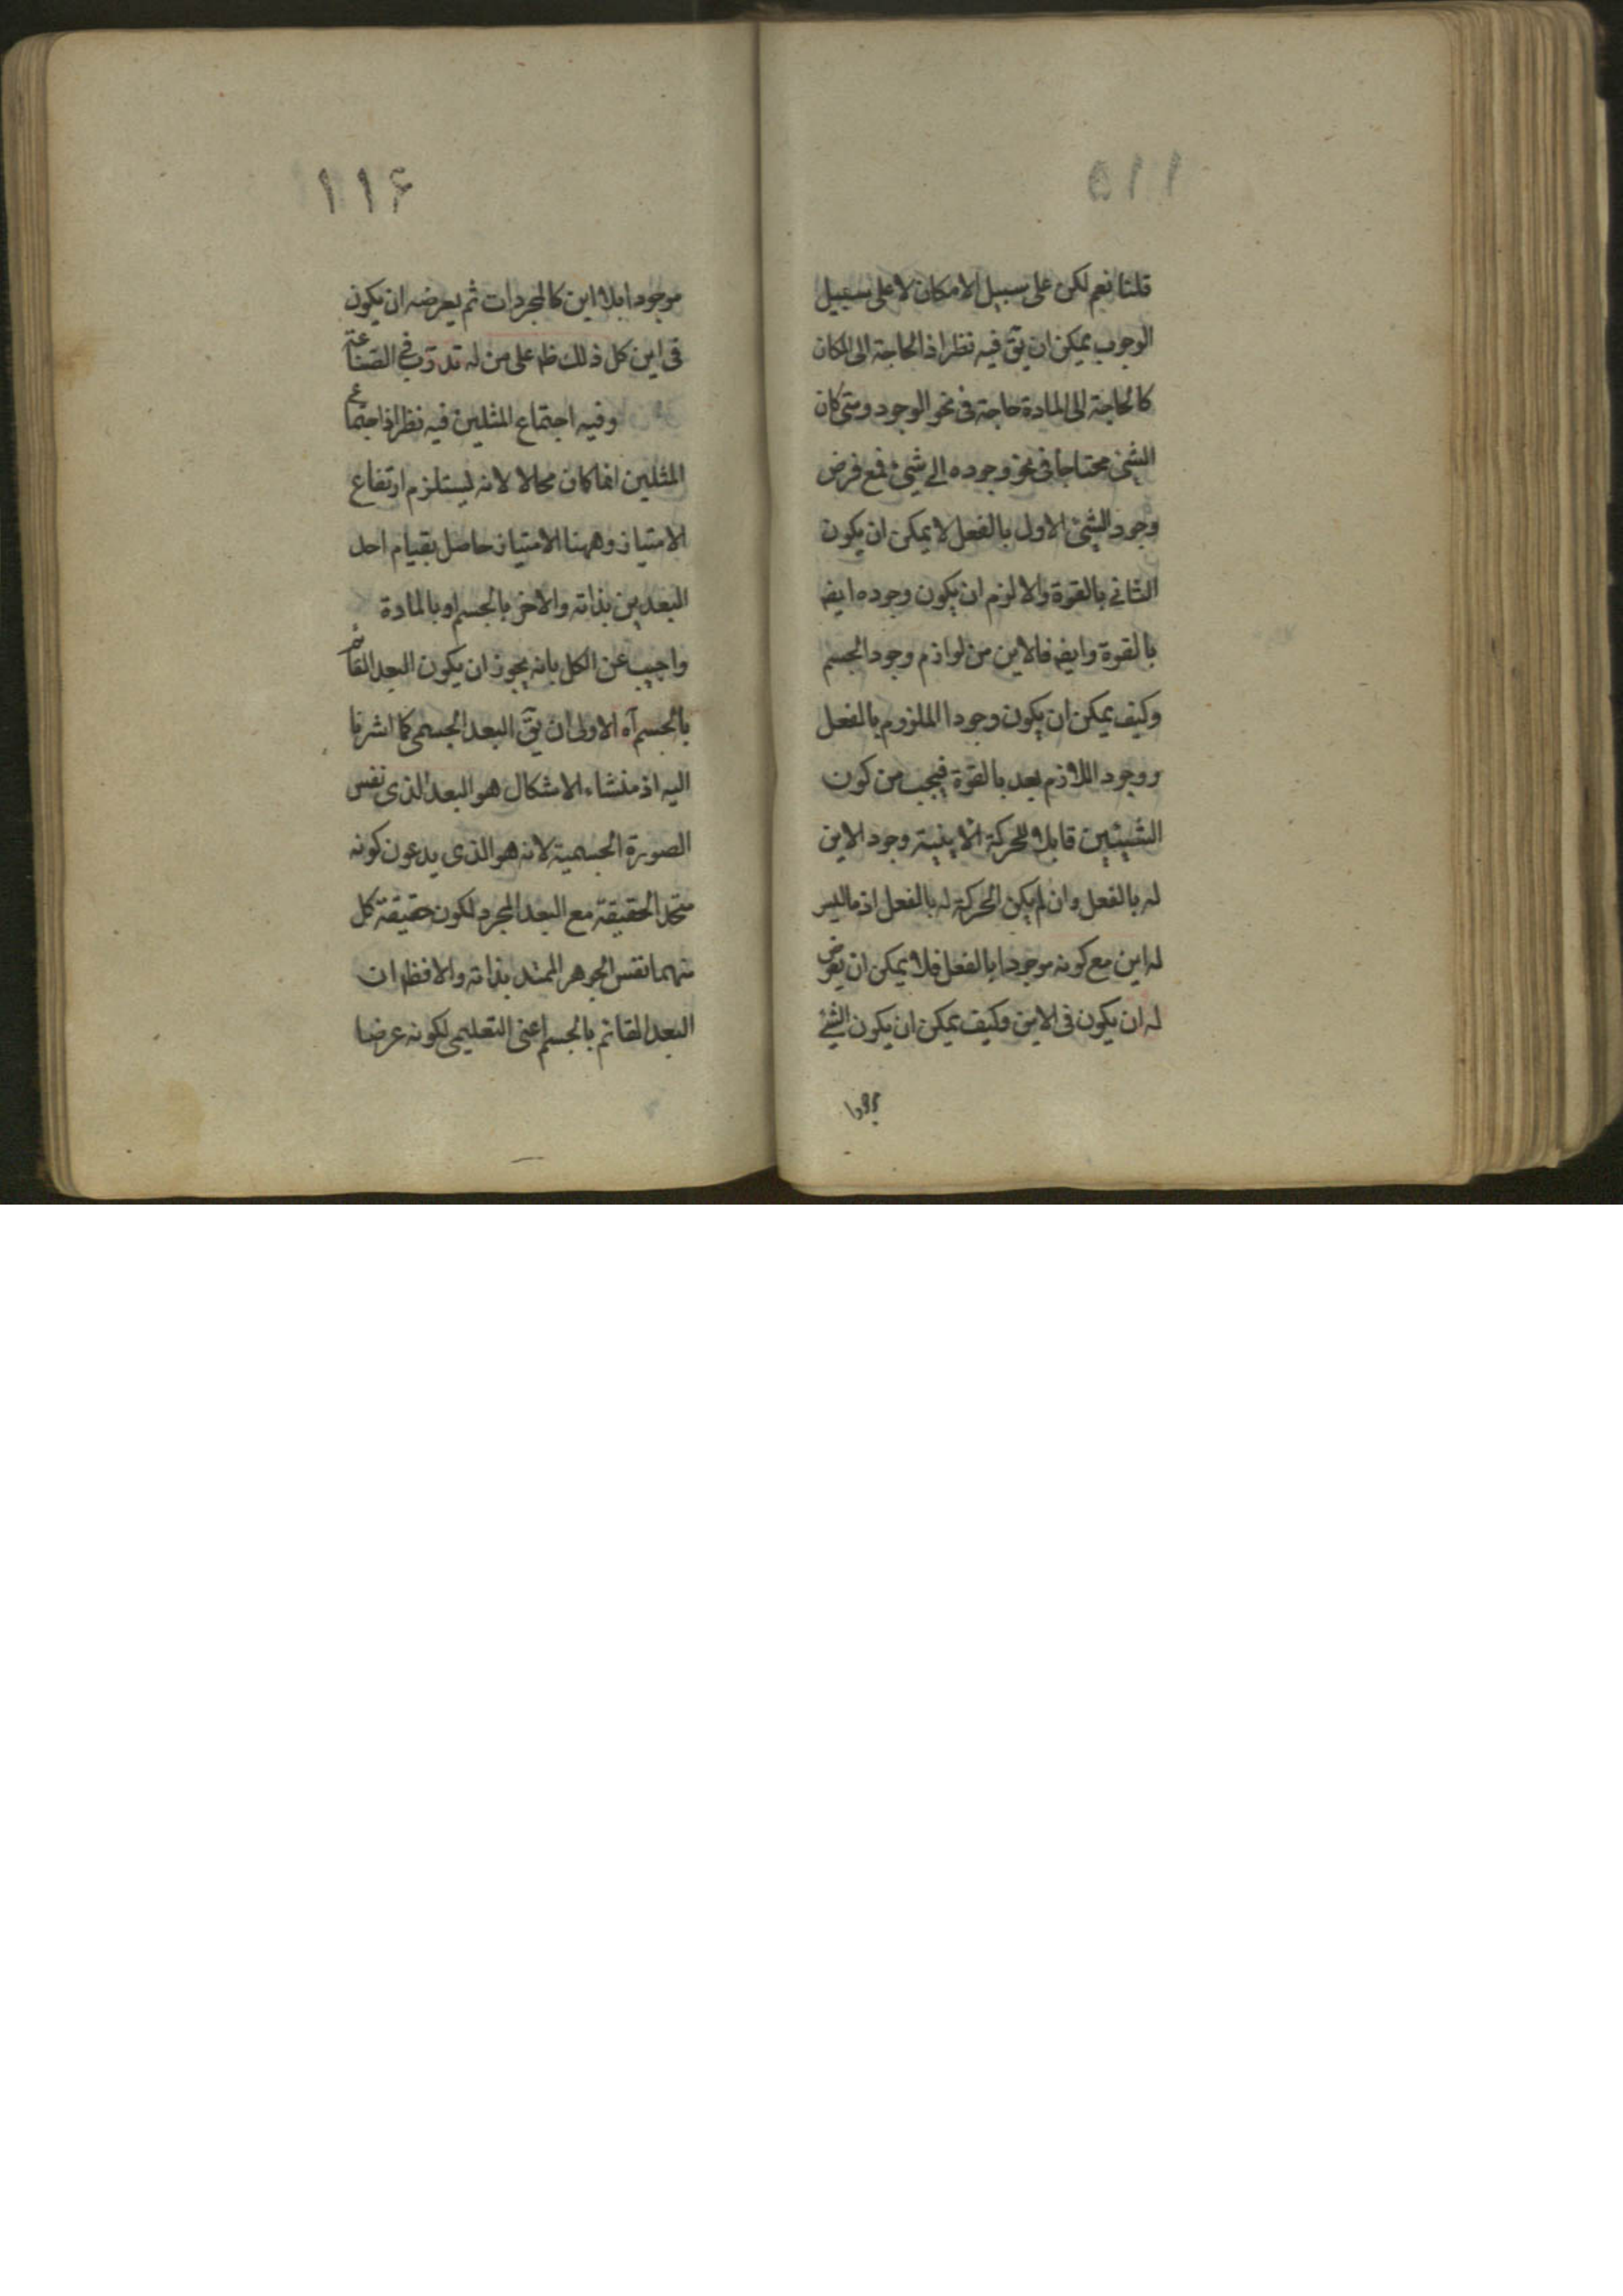 ١١۵
قلنا نعم لكن على سبيل الامكان لا على سبيل
الوجوب يمكن ان يقّ فيه نظر اذ الحاجة الى المكان
كالحاجة الى المادة حاجة فى نحو الوجود ومتى كان
الشئ محتاجا فى نحو وجوده الى شئ فمع فرض
وجود الشئ الاول بالفعل لا يمكن ان يكون
الثانى بالقوة والا لزم ان يكون وجوده ايضا
بالقوة وايضا فالاين من لوازم وجود الجسم
وكيف يمكن ان يكون وجود الملزوم بالفعل
ووجود اللازم بعد بالقوة فيجب من كون
الشيئين قابلا للحركة الاينية وجود الاين
له بالفعل وان لم يكن الحركة له بالفعل اذ ما ليس
له اين مع كونه موجودا بالفعل فلا يمكن ان يعرض
له ان يكون فى الاين وكيف يمكن ان يكون الشئ
١١۶
موجودا بلا اين كالمجردات ثم يعرضه ان يكون
فى اين كل ذلك ظ على من له تدرّب فى الصناعة
وفيه اجتماع المثلين فيه نظر اذ اجتماع
المثلين انما كان محالا لانه يستلزم ارتفاع
الامتياز وههنا الامتياز حاصل بقيام احد
البعدين بذاته والاخر بالجسم او بالمادة
واجيب عن الكل بانه يجوز ان يكون البعد القائم
بالجسم آه الاولى ان يقّ البعد الجسمى كما اشرنا
اليه اذ منشاء الاشكال هو البعد الذى نفس
الصورة الجسمية لانه هو الذى يدعون كونه
متحد الحقيقة مع البعد المجرد لكون حقيقة كل
منهما نفس الجوهر الممتد بذاته والا فظ ان
البعد القائم بالجسم اعنى التعليمى لكونه عرضا